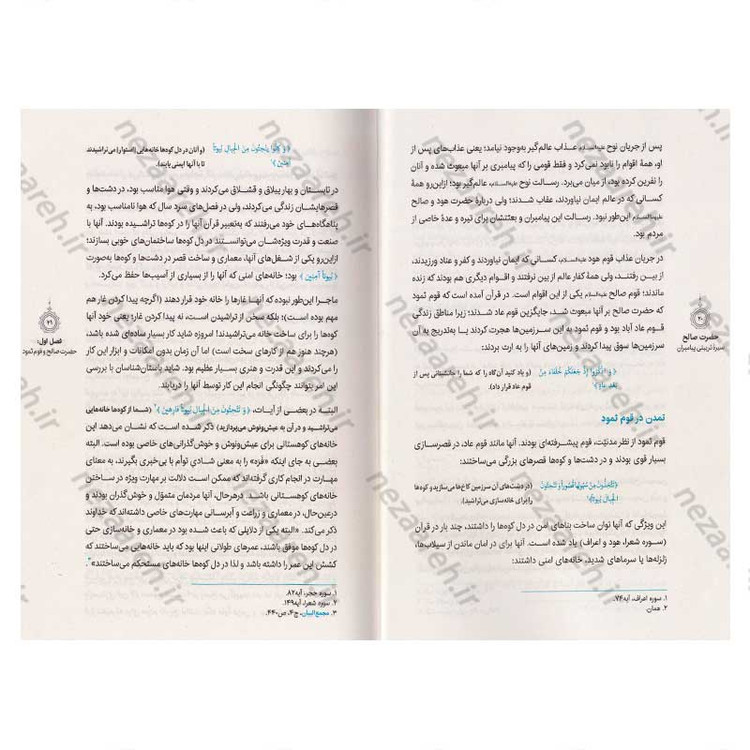 پس از جریان نوح علیه‌السلام عذاب عالم‌گیر به‌وجود نیامد؛ یعنی عذاب‌های پس از
او، همهٔ اقوام را نابود نمی‌کرد و فقط قومی را که پیامبری بر آنها مبعوث شده و آنان
را نفرین کرده بود، از میان می‌برد. رسالت نوح علیه‌السلام عالم‌گیر بود؛ ازاین‌رو همهٔ
کسانی که در عالم ایمان نیاوردند، عقاب شدند؛ ولی دربارهٔ حضرت هود و صالح
علیهماالسلام این‌طور نبود. رسالت این پیامبران و بعثتشان برای تیره و عدهٔ خاصی از
مردم بود.
در جریان عذاب قوم هود علیه‌السلام، کسانی که ایمان نیاوردند و کفر و عناد ورزیدند،
از بین رفتند، ولی همهٔ کفار عالم از بین نرفتند و اقوام دیگری هم بودند که زنده
ماندند؛ قوم صالح علیه‌السلام یکی از این اقوام است. در قرآن آمده است که قوم ثمود
که حضرت صالح بر آنها مبعوث شد، جایگزین قوم عاد شدند؛ زیرا مناطق زندگی
قوم عاد آباد بود و قوم ثمود به این سرزمین‌ها هجرت کردند یا به‌تدریج به آن
سرزمین‌ها سوق پیدا کردند و زمین‌های آنها را به ارث بردند:
﴿وَ اذْكُرُوا إِذْ جَعَلَكُمْ خُلَفَاءَ مِنْ (و یاد کنید آن‌گاه را که شما را جانشینانی پس از
بَعْدِ عَادٍ﴾ ۱ قوم عاد قرار داد).
تمدن در قوم ثمود
قوم ثمود از نظر مدنیّت، قوم پیشرفته‌ای بودند. آنها مانند قوم عاد، در قصرسازی
بسیار قوی بودند و در دشت‌ها و کوه‌ها قصرهای بزرگی می‌ساختند:
﴿تَتَّخِذُونَ مِنْ سُهُولِهَا قُصُوراً وَ تَنْحِتُونَ (در دشت‌های آن سرزمین کاخ‌ها می‌سازید و کوه‌ها
الْجِبَالَ بُيُوتاً﴾ ۲ را برای خانه‌سازی می‌تراشید).
این ویژگی که آنها توان ساخت بناهای امن در دل کوه‌ها را داشتند، چند بار در قرآن
(سوره شعرا، هود و اعراف) یاد شده است. آنها برای در امان ماندن از سیلاب‌ها،
زلزله‌ها یا سرماهای شدید، خانه‌های امنی داشتند:
۱. سوره اعراف، آیه۷۴.
۲. همان.
۲۰
حضرت صالح
سیرهٔ تربیتی پیامبران
﴿وَ كَانُوا يَنْحِتُونَ مِنَ الْجِبَالِ بُيُوتاً (و آنان در دل کوه‌ها خانه‌هایی (استوار) می‌تراشیدند
آمِنِينَ﴾ ۱ تا با آنها ایمنی یابند).
در تابستان و بهار ییلاق و قشلاق می‌کردند و وقتی هوا مناسب بود، در دشت‌ها و
قصرهایشان زندگی می‌کردند، ولی در فصل‌های سرد سال که هوا نامناسب بود، به
پناهگاه‌های خود می‌رفتند که به‌تعبیر قرآن آنها را در کوه‌ها تراشیده بودند. آنها با
صنعت و قدرت ویژه‌شان می‌توانستند در دل کوه‌ها ساختمان‌های خوبی بسازند؛
ازاین‌رو یکی از شغل‌های آنها، معماری و ساخت قصر در دشت‌ها و کوه‌ها به‌صورت
﴿بُيُوتاً آمِنِينَ﴾ بود؛ خانه‌های امنی که آنها را از بسیاری از آسیب‌ها حفظ می‌کرد.
ماجرا این‌طور نبوده که آنها غارها را خانه خود قرار دهند (اگرچه پیدا کردن غار هم
مهم بوده است)؛ بلکه سخن از تراشیدن است، نه پیدا کردن غار؛ یعنی خود آنها
کوه‌ها را برای ساخت خانه می‌تراشیدند! امروزه شاید کار بسیار ساده‌ای شده باشد،
(هرچند هنوز هم از کارهای سخت است) اما آن زمان بدون امکانات و ابزار این کار
را می‌کردند و این قدرت و هنری بسیار عظیم بود. شاید باستان‌شناسان با بررسی
این امر بتوانند چگونگی انجام این کار توسط آنها را دریابند.
البته در بعضی از آیات، ﴿وَ تَنْحِتُونَ مِنَ الْجِبَالِ بُيُوتاً فَارِهِينَ﴾ ۲؛ (شما از کوه‌ها خانه‌هایی
می‌تراشید و در آن به عیش‌ونوش می‌پردازید) ذکر شده است که نشان می‌دهد این
خانه‌های کوهستانی برای عیش‌ونوش و خوش‌گذرانی‌های خاصی بوده است. البته
بعضی به جای اینکه «فَرِهَ» را به معنی شادیِ توأم با بی‌خبری بگیرند، به معنای
مهارت در انجام کاری گرفته‌اند که ممکن است دلالت بر مهارت ویژه در ساختن
خانه‌های کوهستانی باشد. درهرحال، آنها مردمان متموّل و خوش‌گذران بودند و
درعین‌حال، در معماری و زراعت و آبرسانی مهارت‌های خاصی داشته‌اند که خداوند
ذکر می‌کند. «البته یکی از دلایلی که باعث شده بود در معماری و خانه‌سازی حتی
در دل کوه‌ها موفق باشند، عمرهای طولانی اینها بود که باید خانه‌هایی می‌ساختند که
کشش این عمر را داشته باشد و لذا در دل کوه‌ها خانه‌های مستحکم می‌ساختند» ۳.
۱. سوره حجر، آیه۸۲.
۲. سوره شعرا، آیه۱۴۹.
۳. مجمع‌البیان، ج۴، ص۴۴۰.
۲۱
فصل اول:
حضرت صالح و قوم ثمود
nezaareh.ir